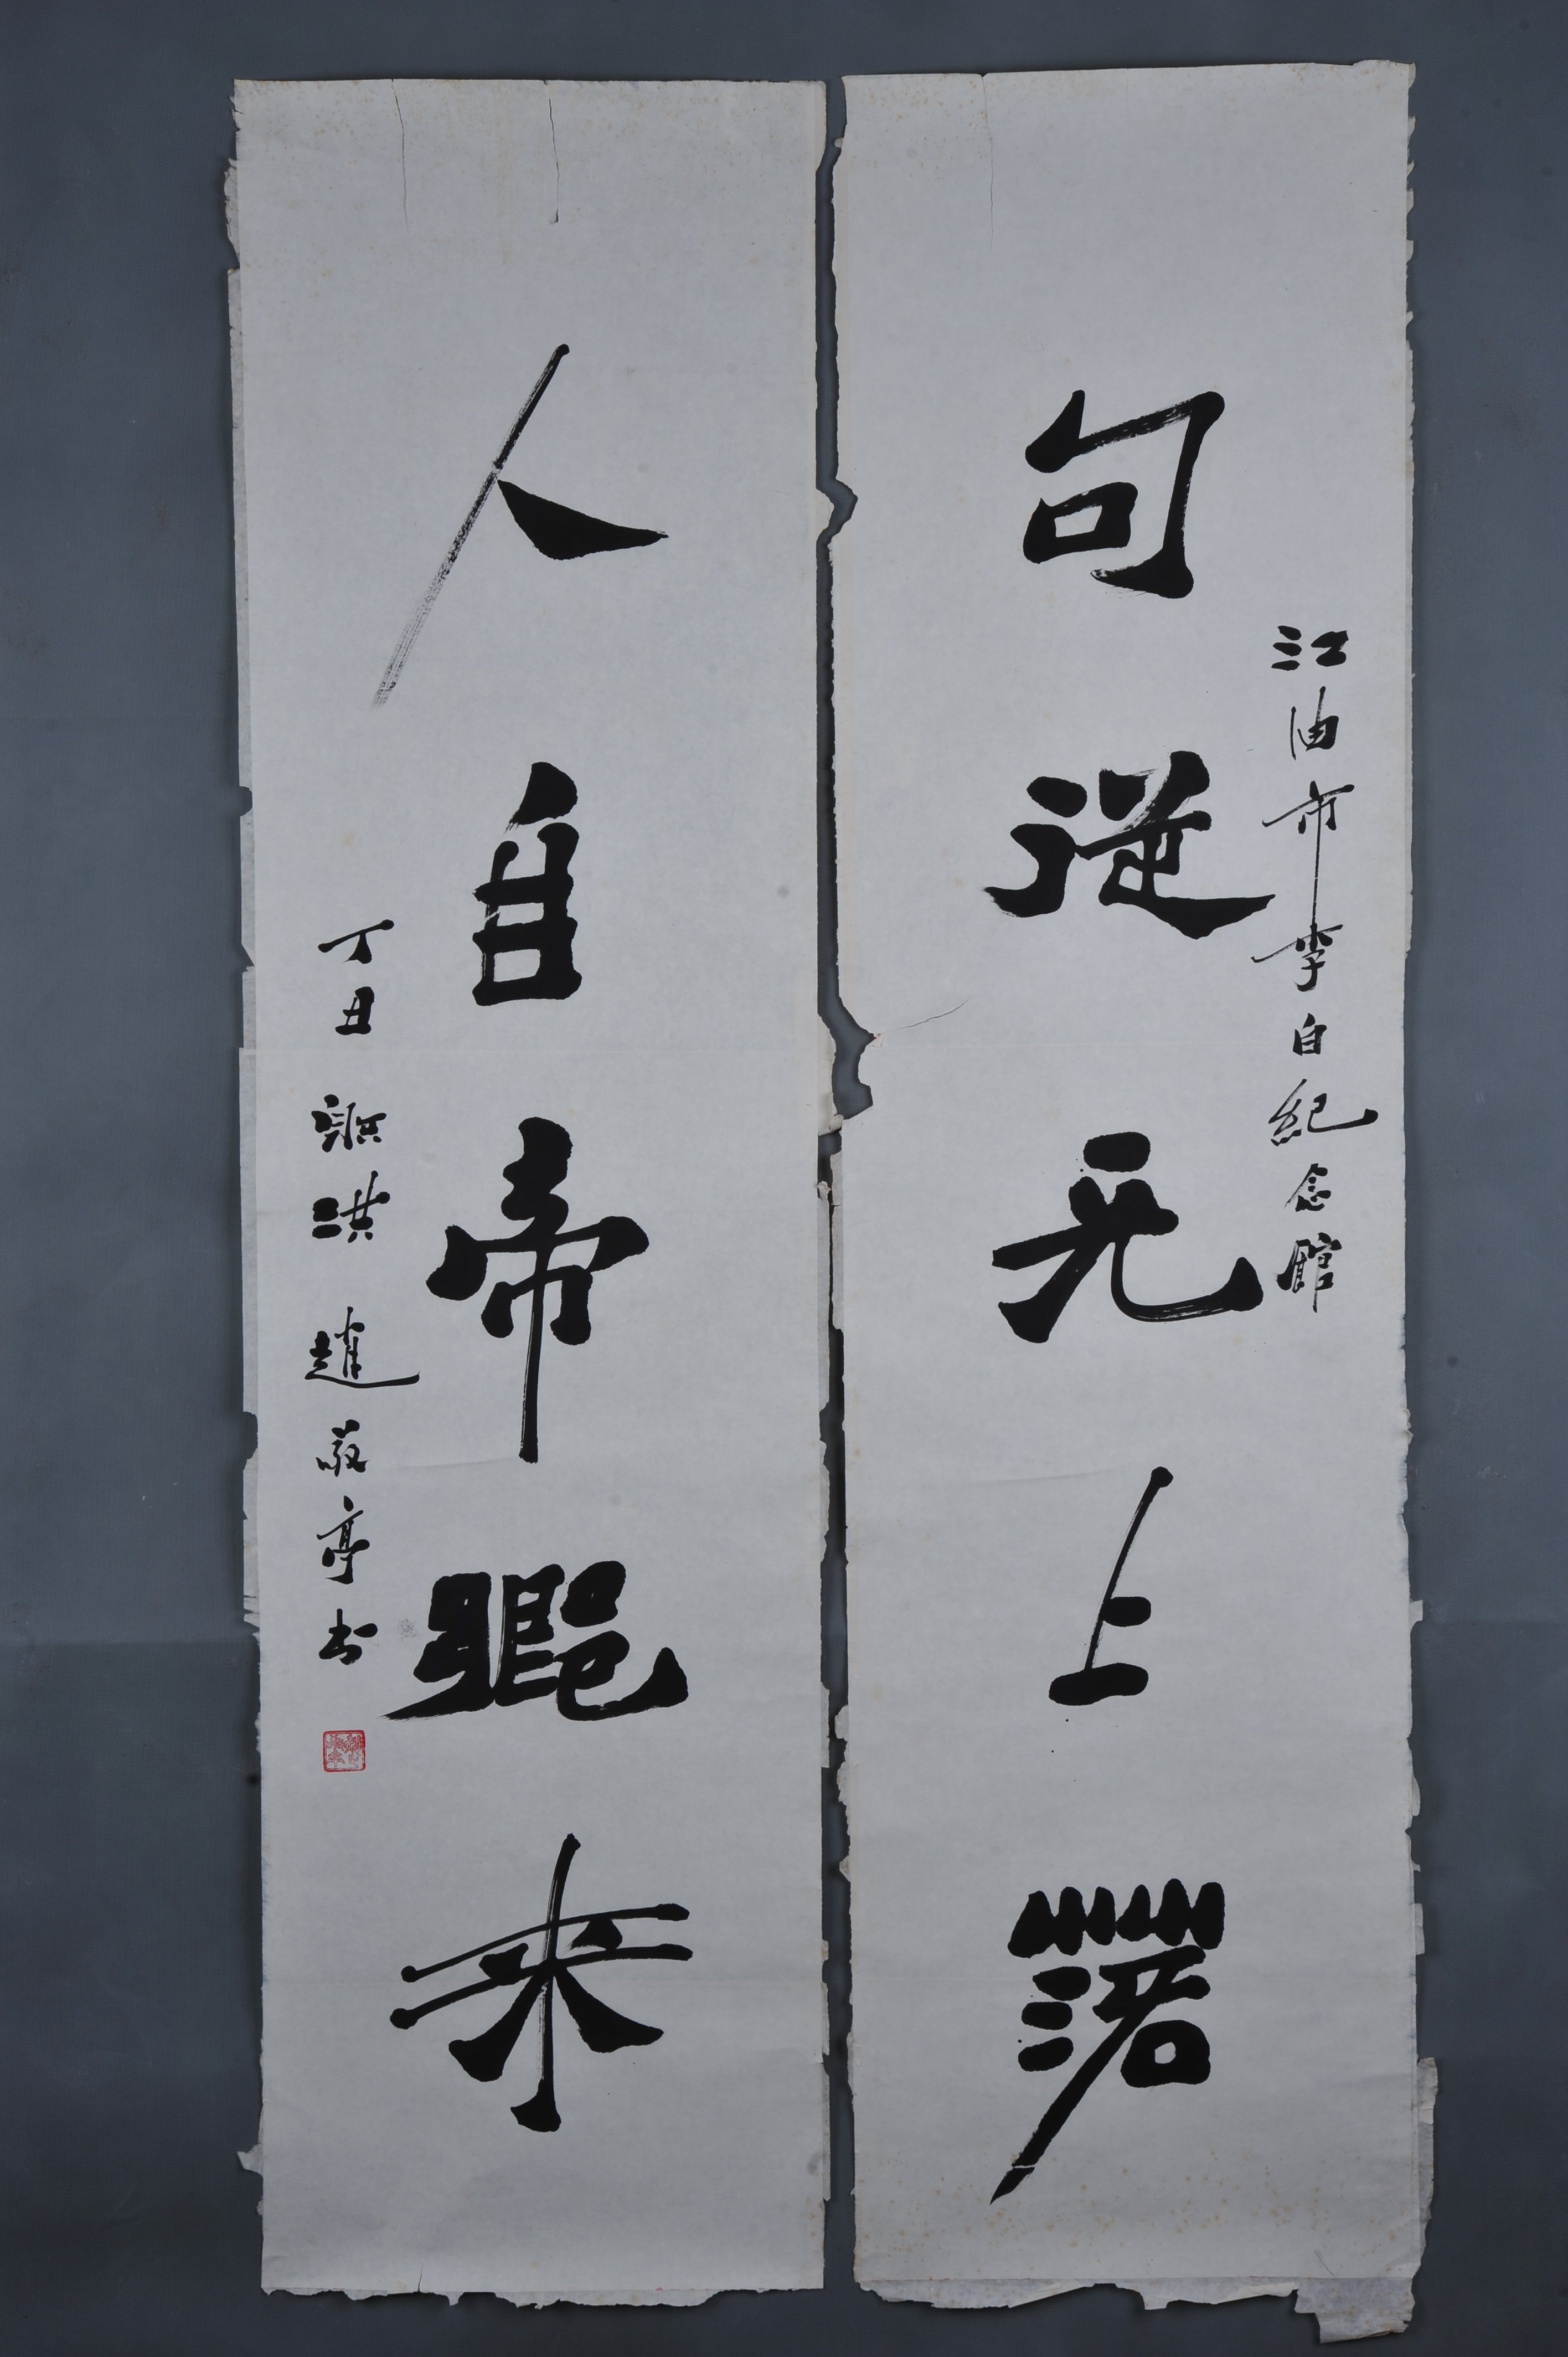 江油市李白紀念館
句從天上落
人自帝鄉來
丁丑 射洪 趙敬亭书